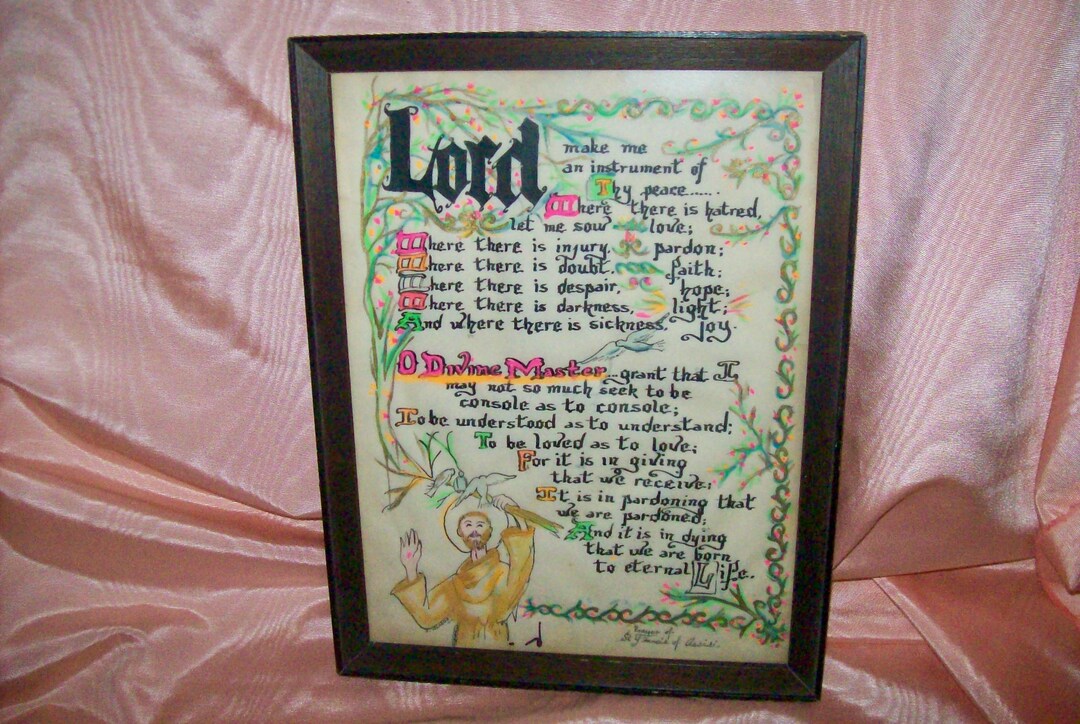 Lord make me
an instrument of
Thy peace......
Where there is hatred,
let me sow love;
Where there is injury, pardon;
Where there is doubt, faith;
Where there is despair, hope;
Where there is darkness, light;
And where there is sickness, Joy.
O Divine Master...grant that I
may not so much seek to be
console as to console;
To be understood as to understand;
To be loved as to love;
For it is in giving
that we receive;
It is in pardoning that
we are pardoned;
And it is in dying
that we are born
to eternal Life.
Prayer of
St Francis of Assisi.